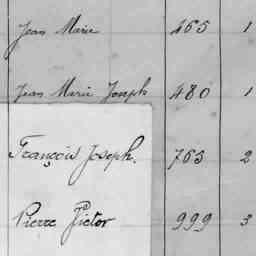 Jean Marie 465 1
Jean Marie Joseph 480 1
François Joseph. 763 2
Pierre Victor 999 3